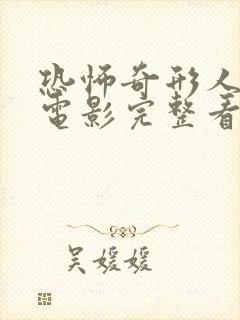 恐怖奇形人
電影完整看
吴媛媛